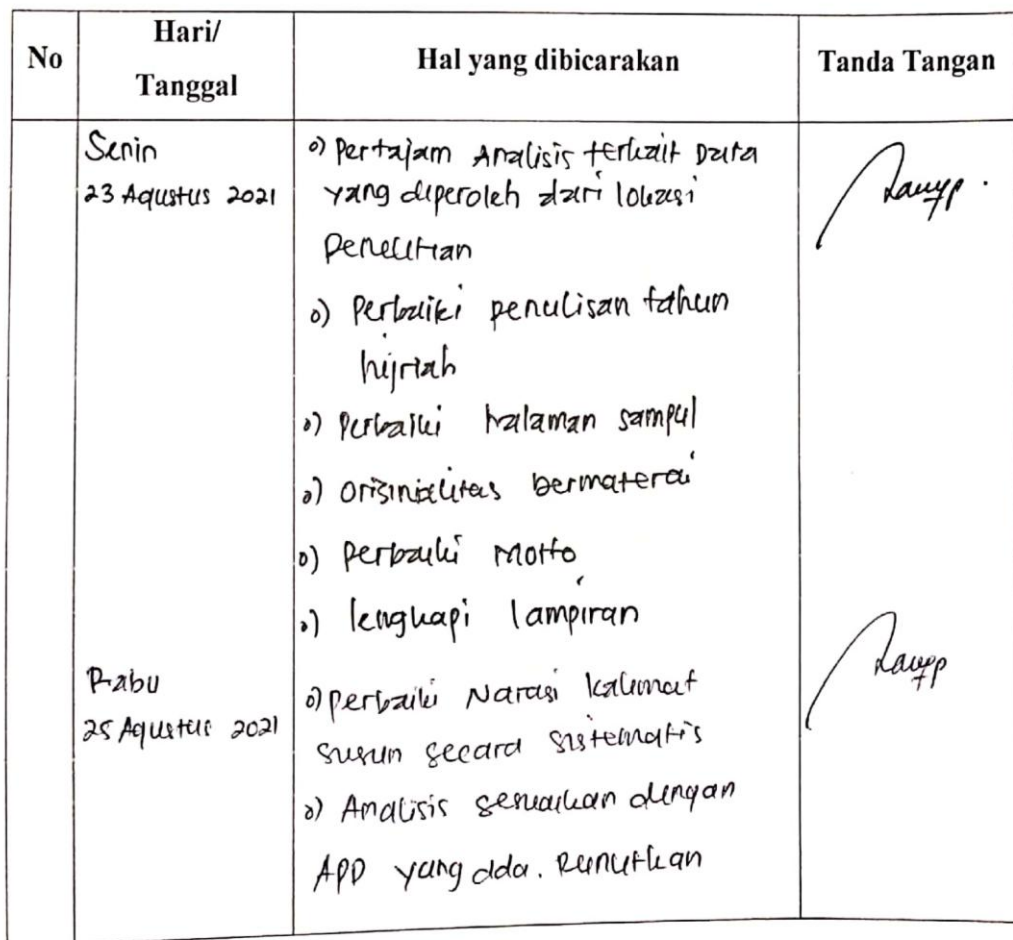 No
Hari/
Tanggal
Hal yang dibicarakan
Tanda Tangan
Senin
23 Agustus 2021
o) Pertajam Analisis terkait Data
yang diperoleh dari lokasi
Penelitian
o) Perbaiki penulisan tahun
hijriah
o) Perbaiki halaman sampul
o) Orisinialitas bermaterai
o) Perbaiki Motto
o) lengkapi lampiran
Rabu
25 Agustus 2021
o) Perbaiki Narasi kalimat
susun secara sistematis
o) Analisis sesuaikan dengan
APD yang ada. Runutkan